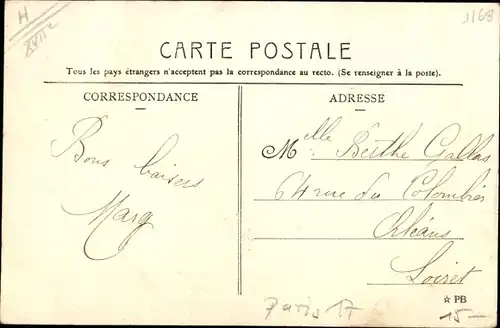 H
XVIIe
1168
CARTE POSTALE
Tous les pays étrangers n'acceptent pas la correspondance au recto. (Se renseigner à la poste).
CORRESPONDANCE
ADRESSE
Bons baisers
Marg
Mlle Berthe Gallas
64 rue du Colombier
Orléans
Loiret
☆ PB
Paris 17
15-